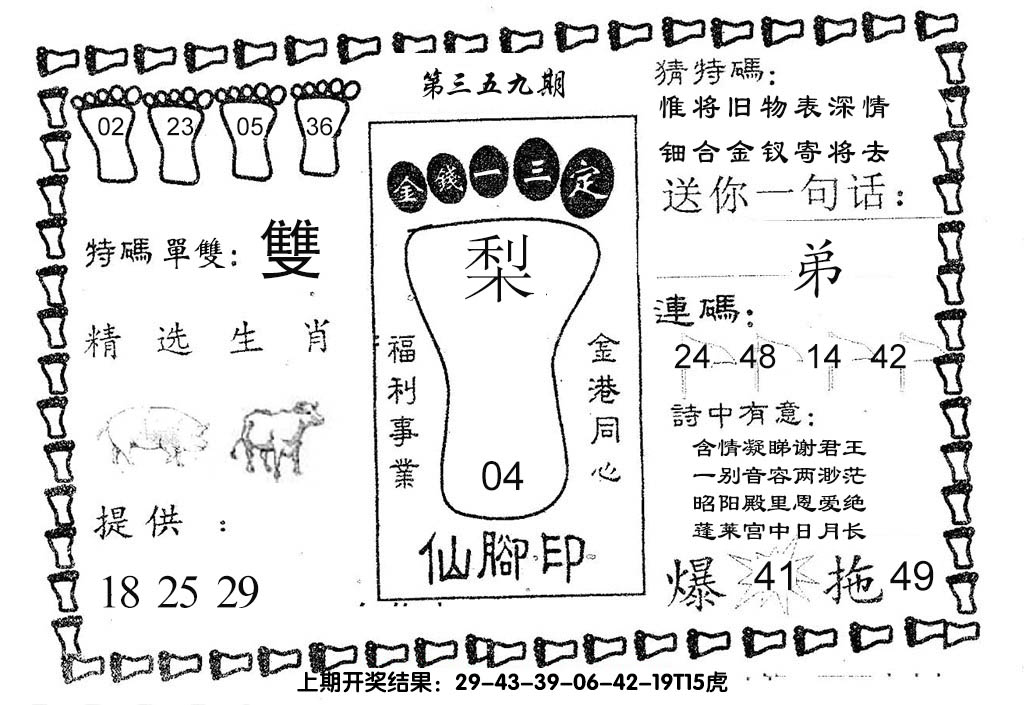 第三五九期
02 23 05 36
特碼單雙：雙
精选生肖
提供：
18 25 29
金錢一三定
梨
福利事業
金港同心
04
仙腳印
猜特碼：
惟将旧物表深情
钿合金钗寄将去
送你一句话：
弟
連碼：
24 48 14 42
詩中有意：
含情凝睇谢君王
一别音容两渺茫
昭阳殿里恩爱绝
蓬莱宫中日月长
爆 41 拖 49
上期开奖结果：29-43-39-06-42-19T15虎